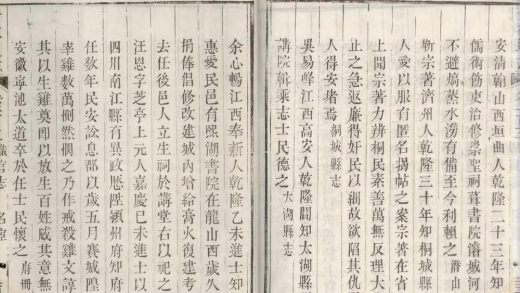 安清翰山西垣曲人乾隆二十三年知
儒術飭吏治修祭聖祠葺書院濬城河
不避熇蒸水澇有備至今利賴之 潛山
靳宗著濟州人乾隆三十年知桐城縣
人愛以服有匿名揭帖之案宗著在省
上聞宗著力辨桐民素善萬無反理大
止之急返廉得奸民以細故欲陷其仇
人得安堵焉 桐城縣志
吳易峰江西高安人乾隆間知太湖縣
講院輯乘志士民德之 太湖縣志
余心暢江西奉新人乾隆乙未進士知
惠愛民邑有熙湖書院在龍山西歲久
捐俸倡修改建城內增給膏火復建考
去任後邑人立生祠於講堂右以祀之
汪恩字芝亭上元人嘉慶己未進士以
四川南江縣有異政歷陞潁州府知府
任數年民安訟息郡以歲五月賽城隍
宰雞數萬恩憫之乃作戒殺雞文諄
其以生雞奠即以放生百姓咸共意無
安徽寧池太道卒於任士民懷之 府冊
職官志 名宦